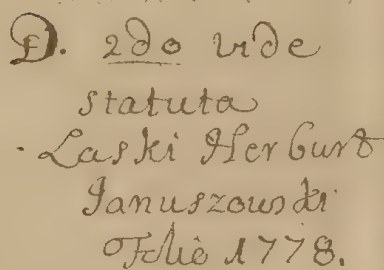 D. 2do vide
statuta
Laski Herburt
Januszowski
Folie 1778.